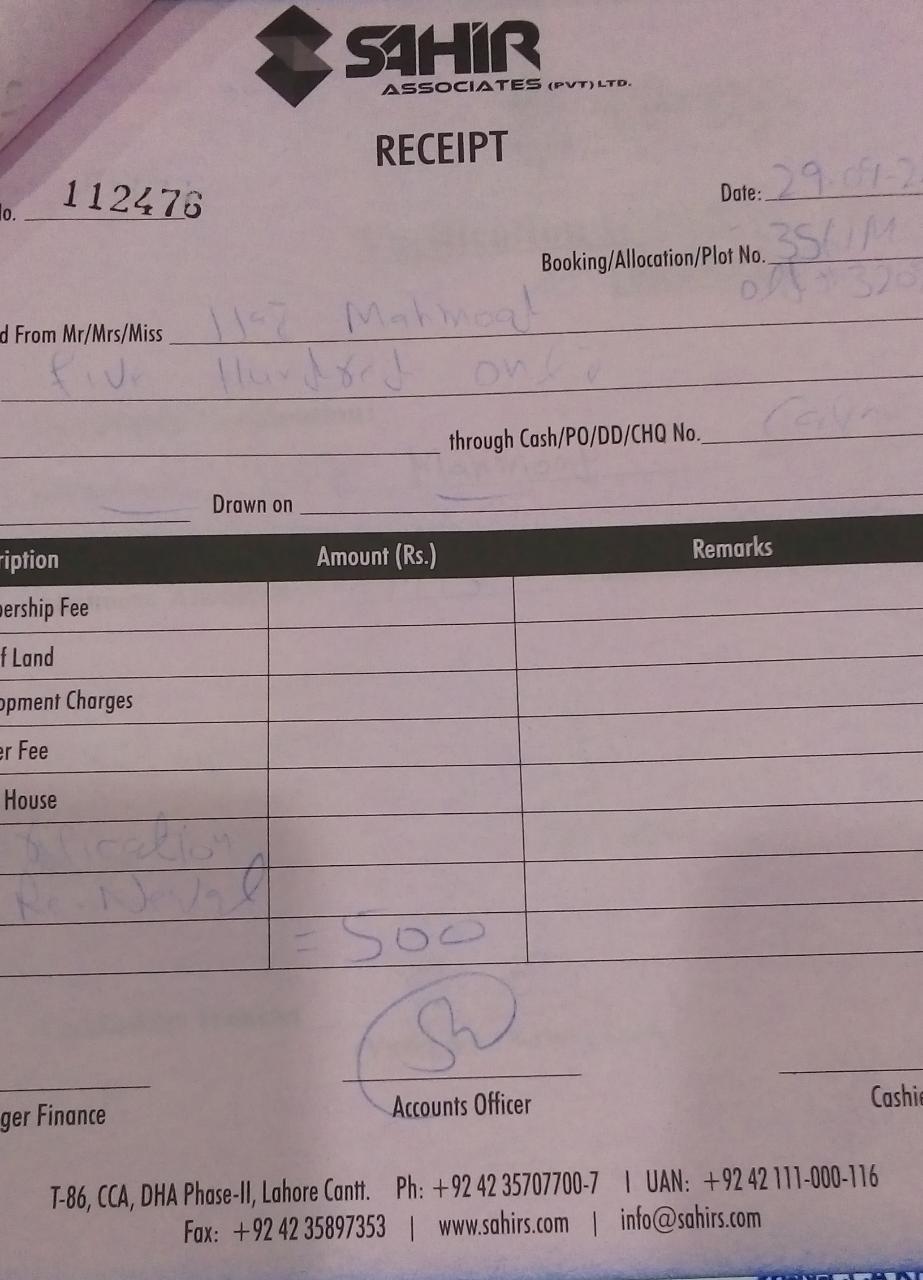 SAHIR
ASSOCIATES (PVT) LTD.
RECEIPT
No. 112476
Date: 29-
Booking/Allocation/Plot No. 35/1M
d From Mr/Mrs/Miss Mahmood
Five Hundred only
through Cash/PO/DD/CHQ No. Cash
Drawn on
ription Amount (Rs.) Remarks
bership Fee
f Land
opment Charges
er Fee
House
Re-Newal
= 500
ger Finance Accounts Officer Cashie
T-86, CCA, DHA Phase-II, Lahore Cantt. Ph: +92 42 35707700-7 | UAN: +92 42 111-000-116
Fax: +92 42 35897353 | www.sahirs.com | info@sahirs.com